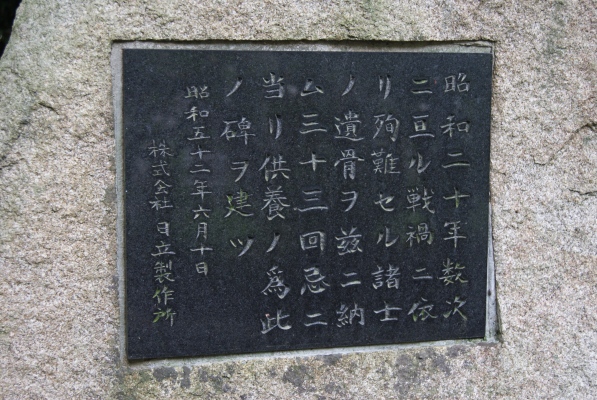 昭和二十年数次
ニ亘ル戦禍ニ依
リ殉難セル諸士
ノ遺骨ヲ茲ニ納
ム三十三回忌ニ
当リ供養ノ為此
ノ碑ヲ建ツ
昭和五十二年六月十日
株式会社日立製作所